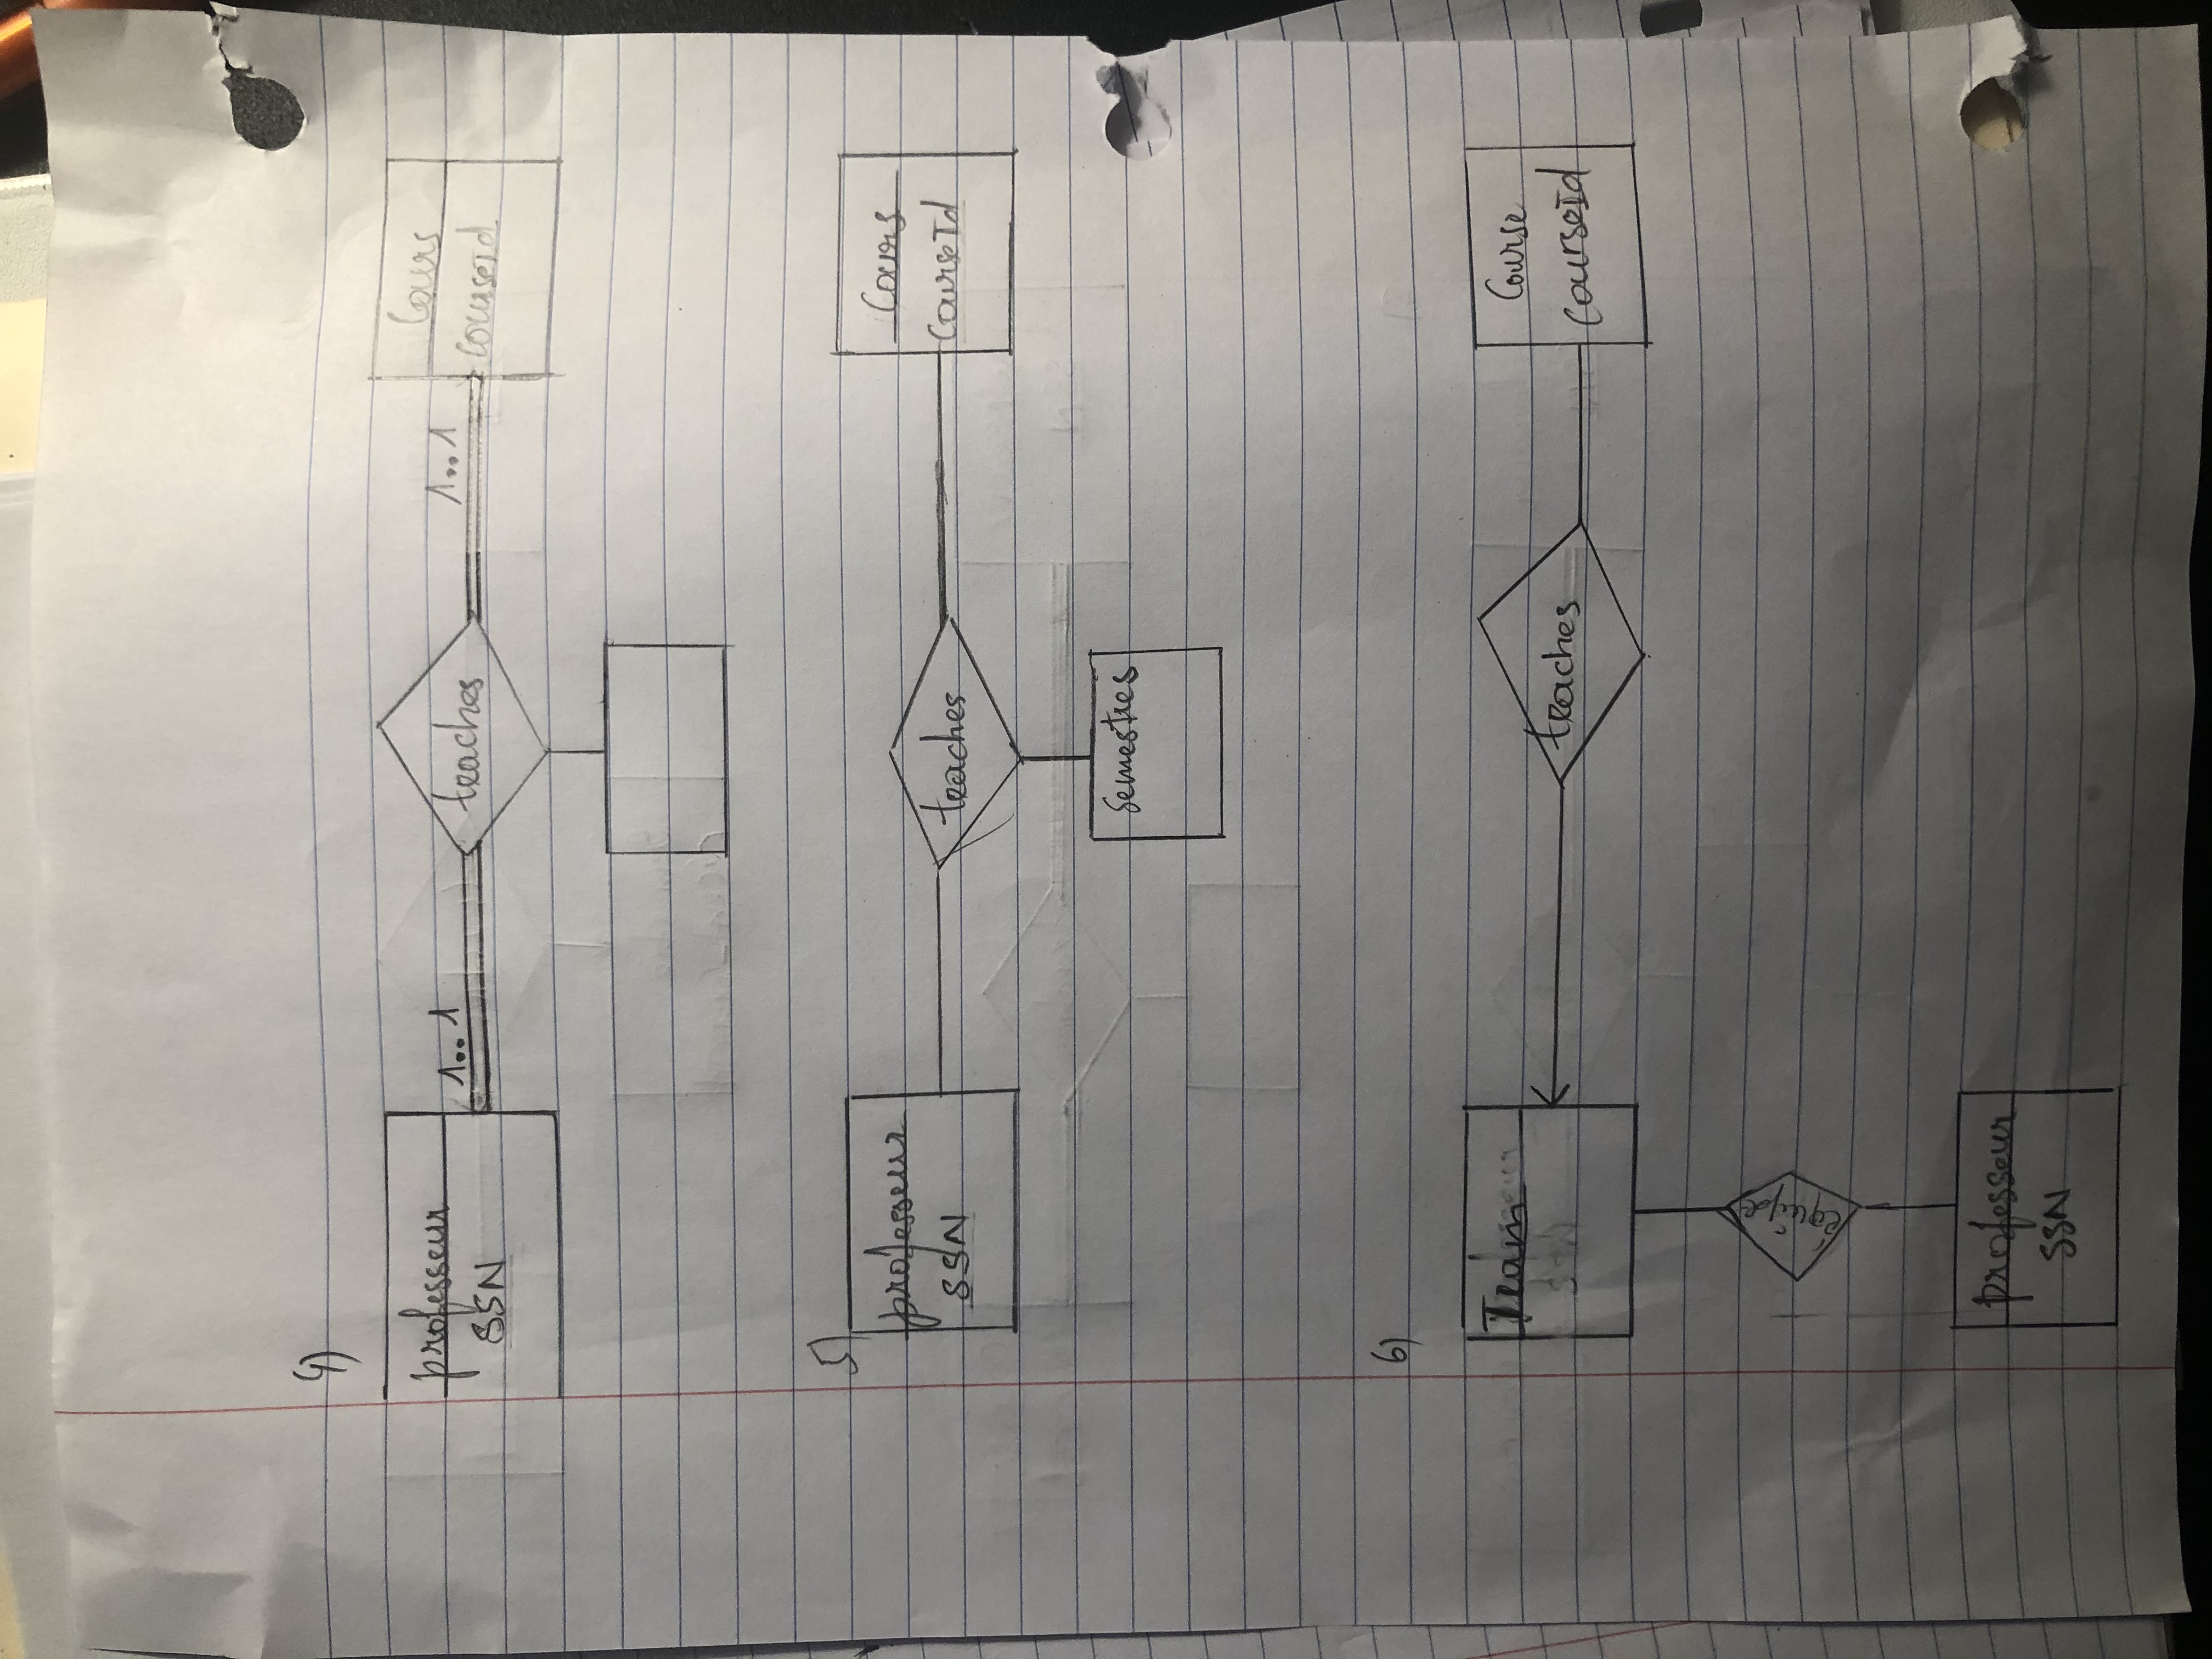 4)
professeur
SSN
1..1
teaches
1..1
Cours
CourseId
5)
professeur
SSN
teaches
Cours
CourseId
Semestres
6)
Team
teaches
Course
CourseId
équipe
professeur
SSN